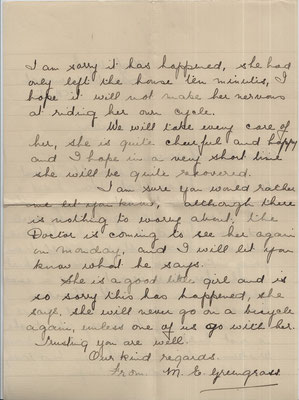 I am sorry it has happened, she had
only left the house ten minutes, I
hope it will not make her nervous
at riding her own cycle.
We will take every care of
her, she is quite cheerful and happy
and I hope in a very short time
she will be quite recovered.
I am sure you would rather
me let you know, although there
is nothing to worry about, the
Doctor is coming to see her again
on Monday, and I will let you
know what he says.
She is a good little girl and is
so sorry this has happened, she
says she will never go on a bicycle
again, unless one of us go with her.
Trusting you are well.
Our kind regards.
From M. E. Greengrass